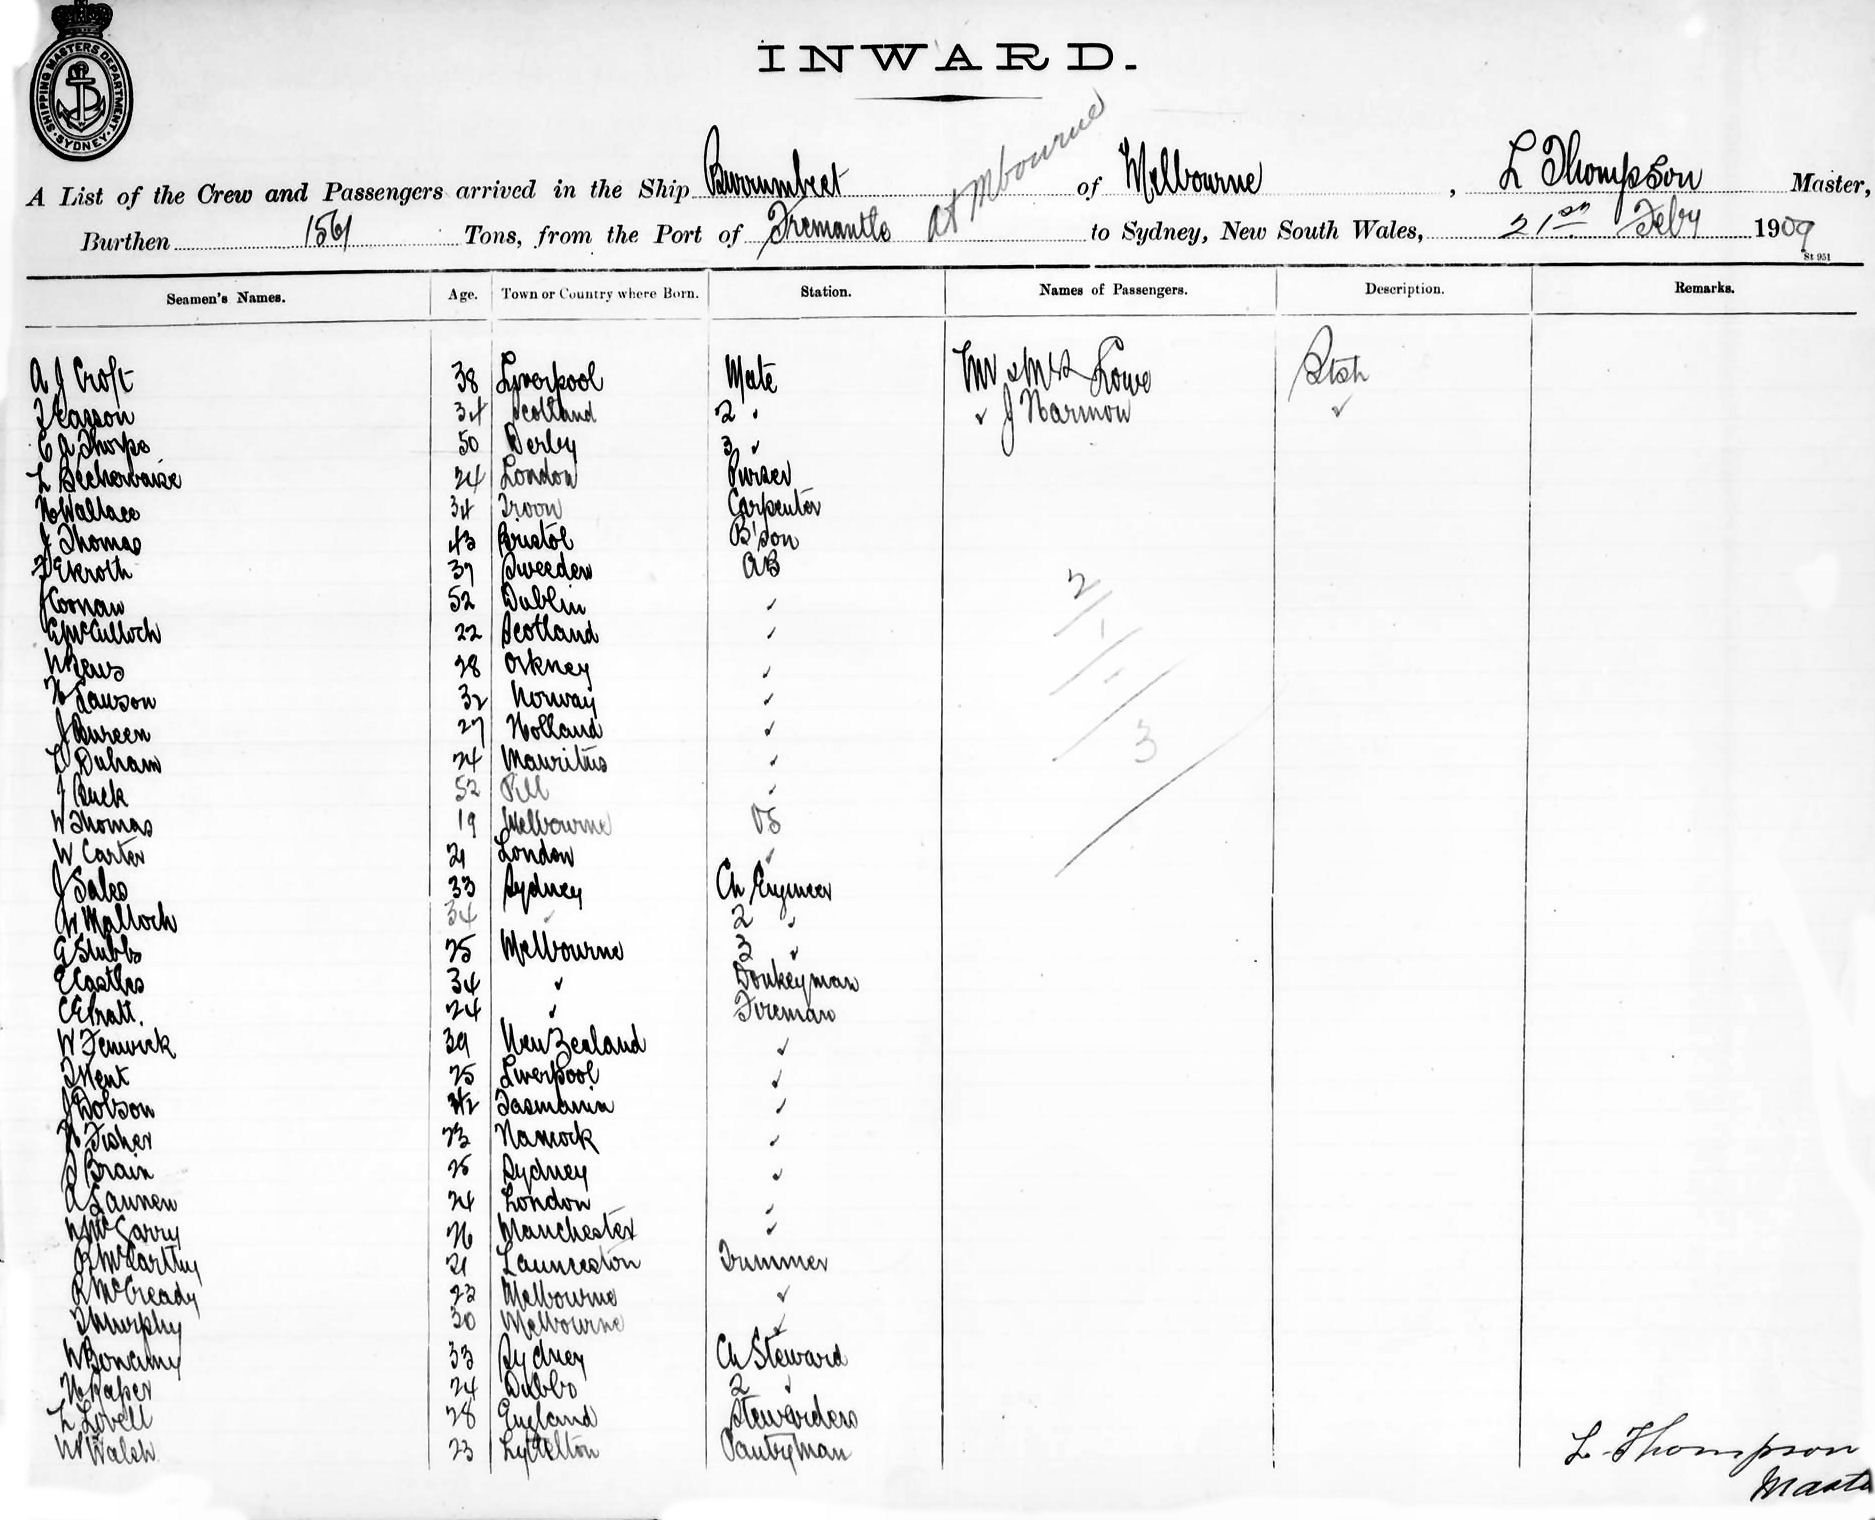 SHIPPING MASTERS DEPARTMENT. SYDNEY.
INWARD.
A List of the Crew and Passengers arrived in the Ship Burrumbeet of Melbourne, L Thompson Master,
at Mbourne
Burthen 1561 Tons, from the Port of Fremantle to Sydney, New South Wales, 21st Feby 1909
St 951
Seamen's Names. Age. Town or Country where Born. Station. Names of Passengers. Description. Remarks.
A J Croft 38 Liverpool Mate Mr & Mrs Lowe
34 Scotland 2 " " J Harmon "
C A Thorpe 50 Derby 3 "
L Bechervaise 24 London Purser
H Wallace 34 Troon Carpenter
J Thomas 43 Bristol B'son
F Ekroth 37 Sweeden AB
J Coonan 52 Dublin "
G McCulloch 22 Scotland "
W Rews 28 Orkney "
H Lawson 32 Norway "
J Bureen 27 Holland "
L Duham 24 Mauritius "
J Buck 52 Pill "
W Thomas 19 Melbourne OS
W Carter 21 London "
J Sales 33 Sydney Ch Engineer
W Malloch 34 " 2 "
G Stubbs 25 Melbourne 3 "
E Castles 34 " Donkeyman
C E Pratt. 24 " Fireman
W Fenwick 39 New Zealand "
T Kent 25 Liverpool "
J Dobson 42 Tasmania "
H Fisher 23 "
J Brain 25 Sydney "
A Launen 24 London "
W McGarry 26 Manchester "
R McCarthy 21 Launceston Trimmer
R McCready 23 Melbourne "
T Murphy 30 Melbourne "
W Bonamy 33 Sydney Ch Steward
H Raper 24 Dubbo 2 "
L Lovell 28 England Stewardess
W Walsh 23 Lyttelton Pantryman
2
1
3
L. Thompson
Master